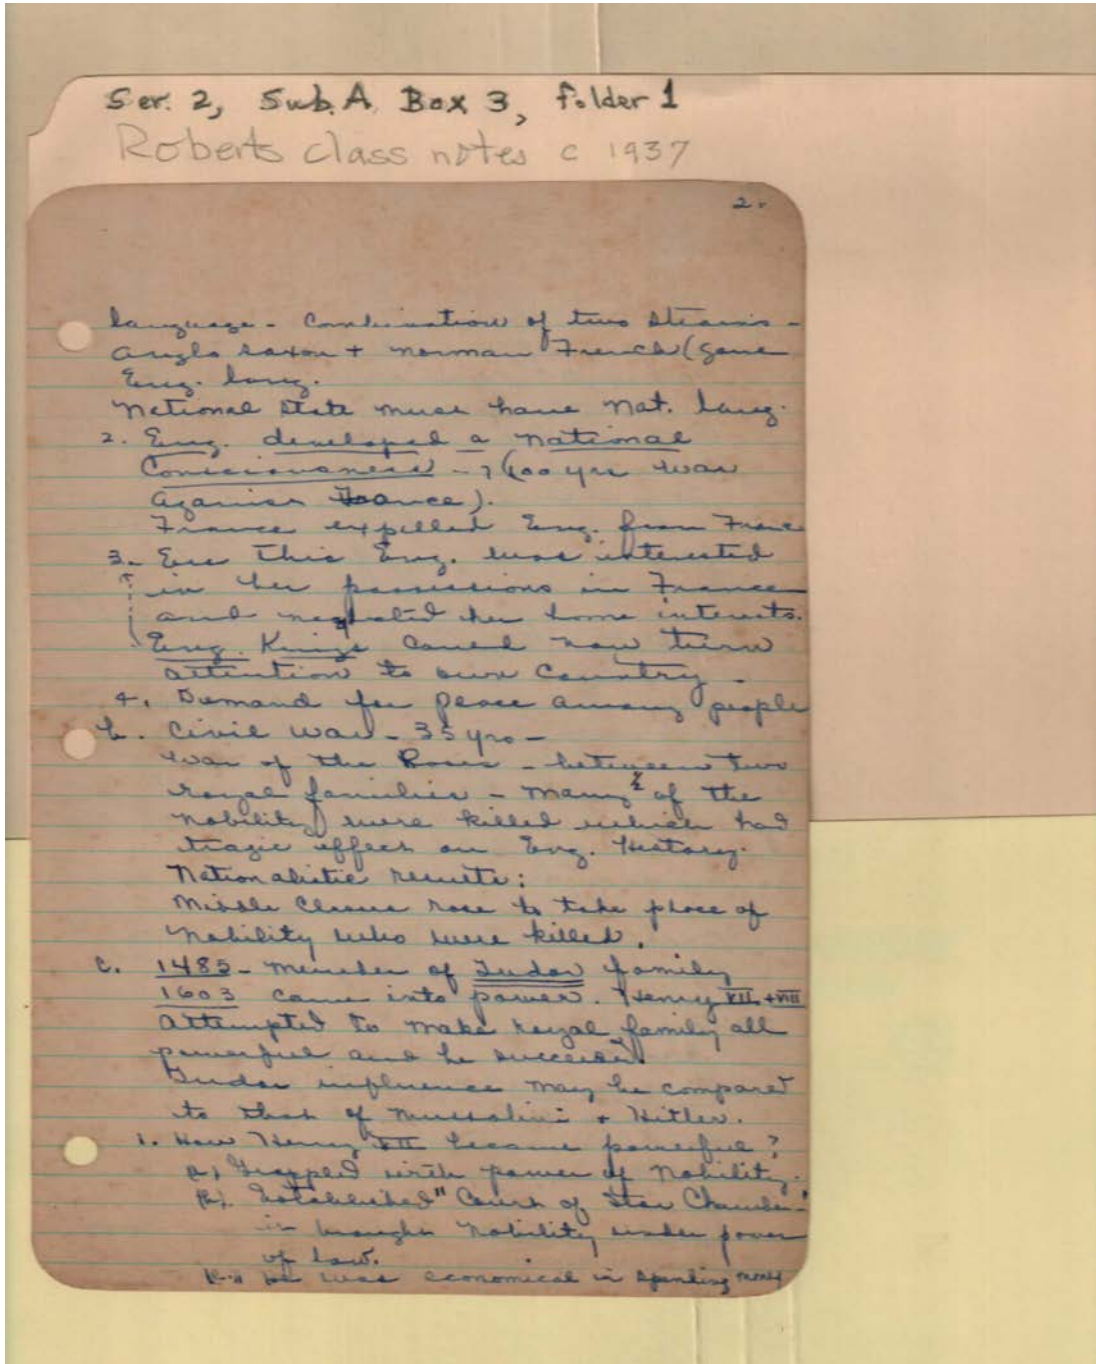 Ser. 2, Sub. A Box 3, folder 1
Roberts class notes c 1937
2.
language - Combination of two strains -
Anglo Saxon + Norman French (gave
Eng. lang.
National State must have Nat. lang.
2. Eng. developed a National
Consciousness - (100 yrs war
against France).
France expelled Eng. from France
3. this Eng. was interested
in her possessions in France
and neglected her home interests.
Eng. Kings could now turn
attention to own Country.
4. Demand for peace among people
b. Civil War - 35 yrs -
War of the Roses - between two
royal families - many of the
nobility were killed which had
tragic effect on Eng. History.
Nationalistic results:
Middle Classes rose to take place of
nobility who were killed.
c. 1485 - member of Tudor family
1603 came into power. Henry VII + VIII
attempted to make royal family all
powerful and he succeeded
Tudor influence may be compared
to that of Mussolini + Hitler.
1. How Henry VII became powerful?
a) Grappled with power of Nobility.
b). Established "Court of Star Chamber"
brought nobility under power
of law.
he was economical in spending money